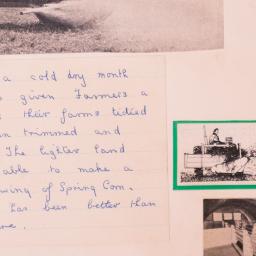 a cold dry month
given Farmers a
their farms tidied
trimmed and
The lighter land
able to make a
of Spring Corn.
has been better than